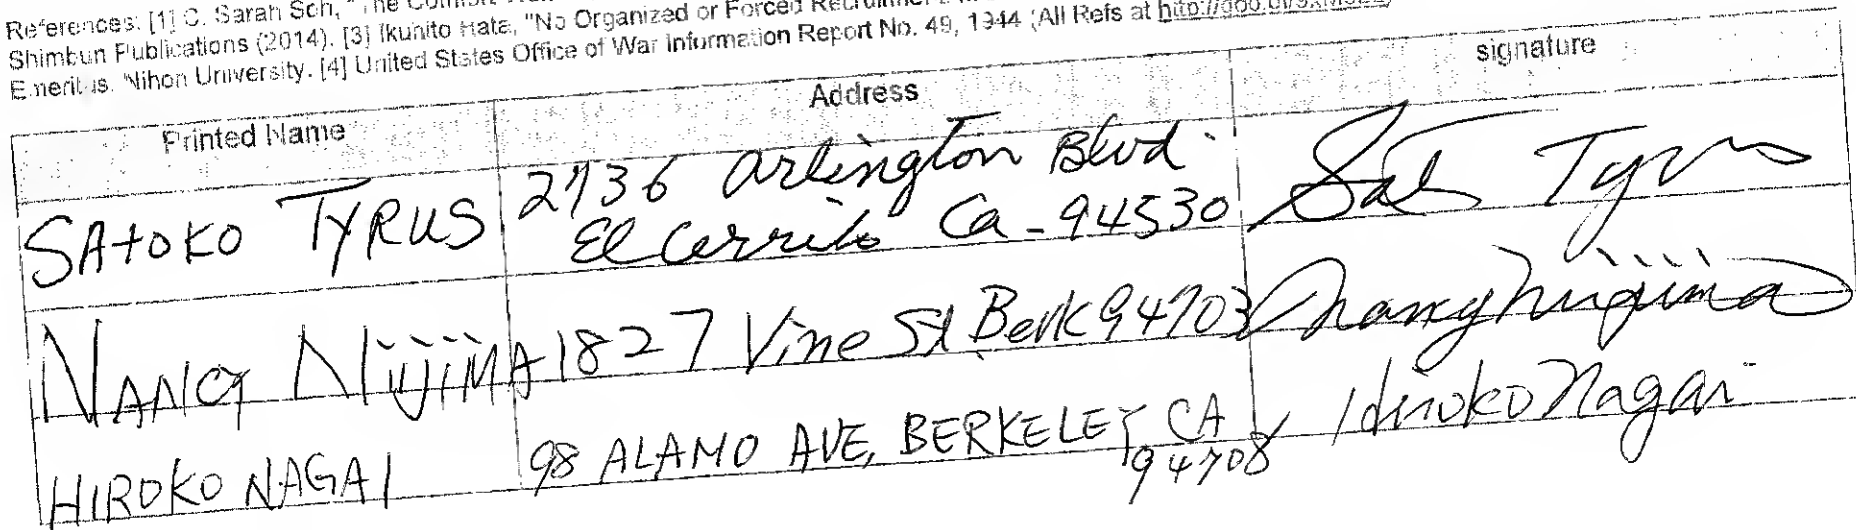 References: [1] C. Sarah Soh, "The
Shimbun Publications (2014). [3] Ikuhito Hata, "No Organized or Forced
Emeritus, Nihon University. [4] United States Office of War Information Report No. 49, 1944 (All Refs at
Printed Name Address signature
SATOKO TYRUS 2736 Arlington Blvd. Tyrus
El Cerrito Ca - 94530
NANCY NIIJIMA 1827 Vine St Berk 94703 Nancy Niijima
HIROKO NAGAI 98 ALAMO AVE, BERKELEY CA Hiroko Nagai
94708